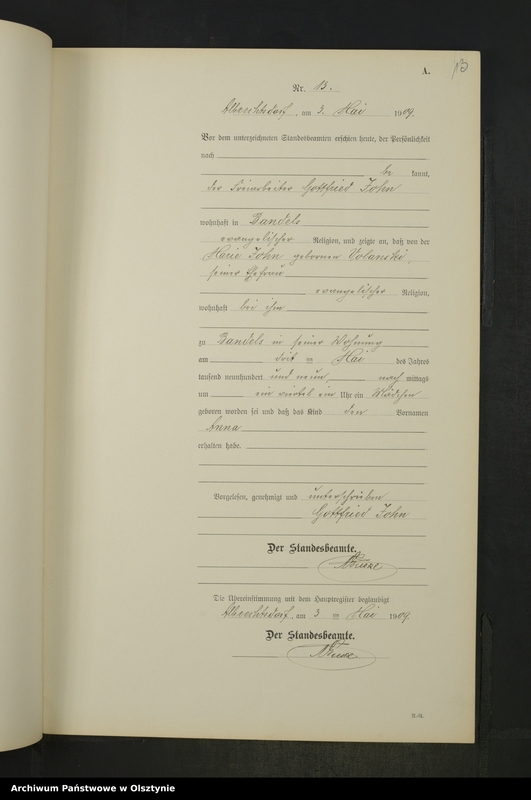 A.
13
Nr. 13.
Albrechtsdorf, am 3. Mai 1909.
Vor dem unterzeichneten Standesbeamten erschien heute, der Persönlichkeit
nach
be kannt,
der Gottfried John
wohnhaft in Bandels
evangelischer Religion, und zeigte an, daß von der
Marie John geborenen Volanski,
seiner Ehefrau
evangelischer Religion,
wohnhaft bei ihm
zu Bandels in seiner Wohnung
am drit en Mai des Jahres
tausend neunhundert und neun, nach mittags
um ein viertel ein Uhr ein Mädchen
geboren worden sei und daß das Kind den Vornamen
Anna
erhalten habe.
Vorgelesen, genehmigt und unterschrieben
Gottfried John
Der Standesbeamte.
Die Übereinstimmung mit dem Hauptregister beglaubigt
Albrechtsdorf, am 3 ten Mai 1909.
Der Standesbeamte.
Archiwum Państwowe w Olsztynie